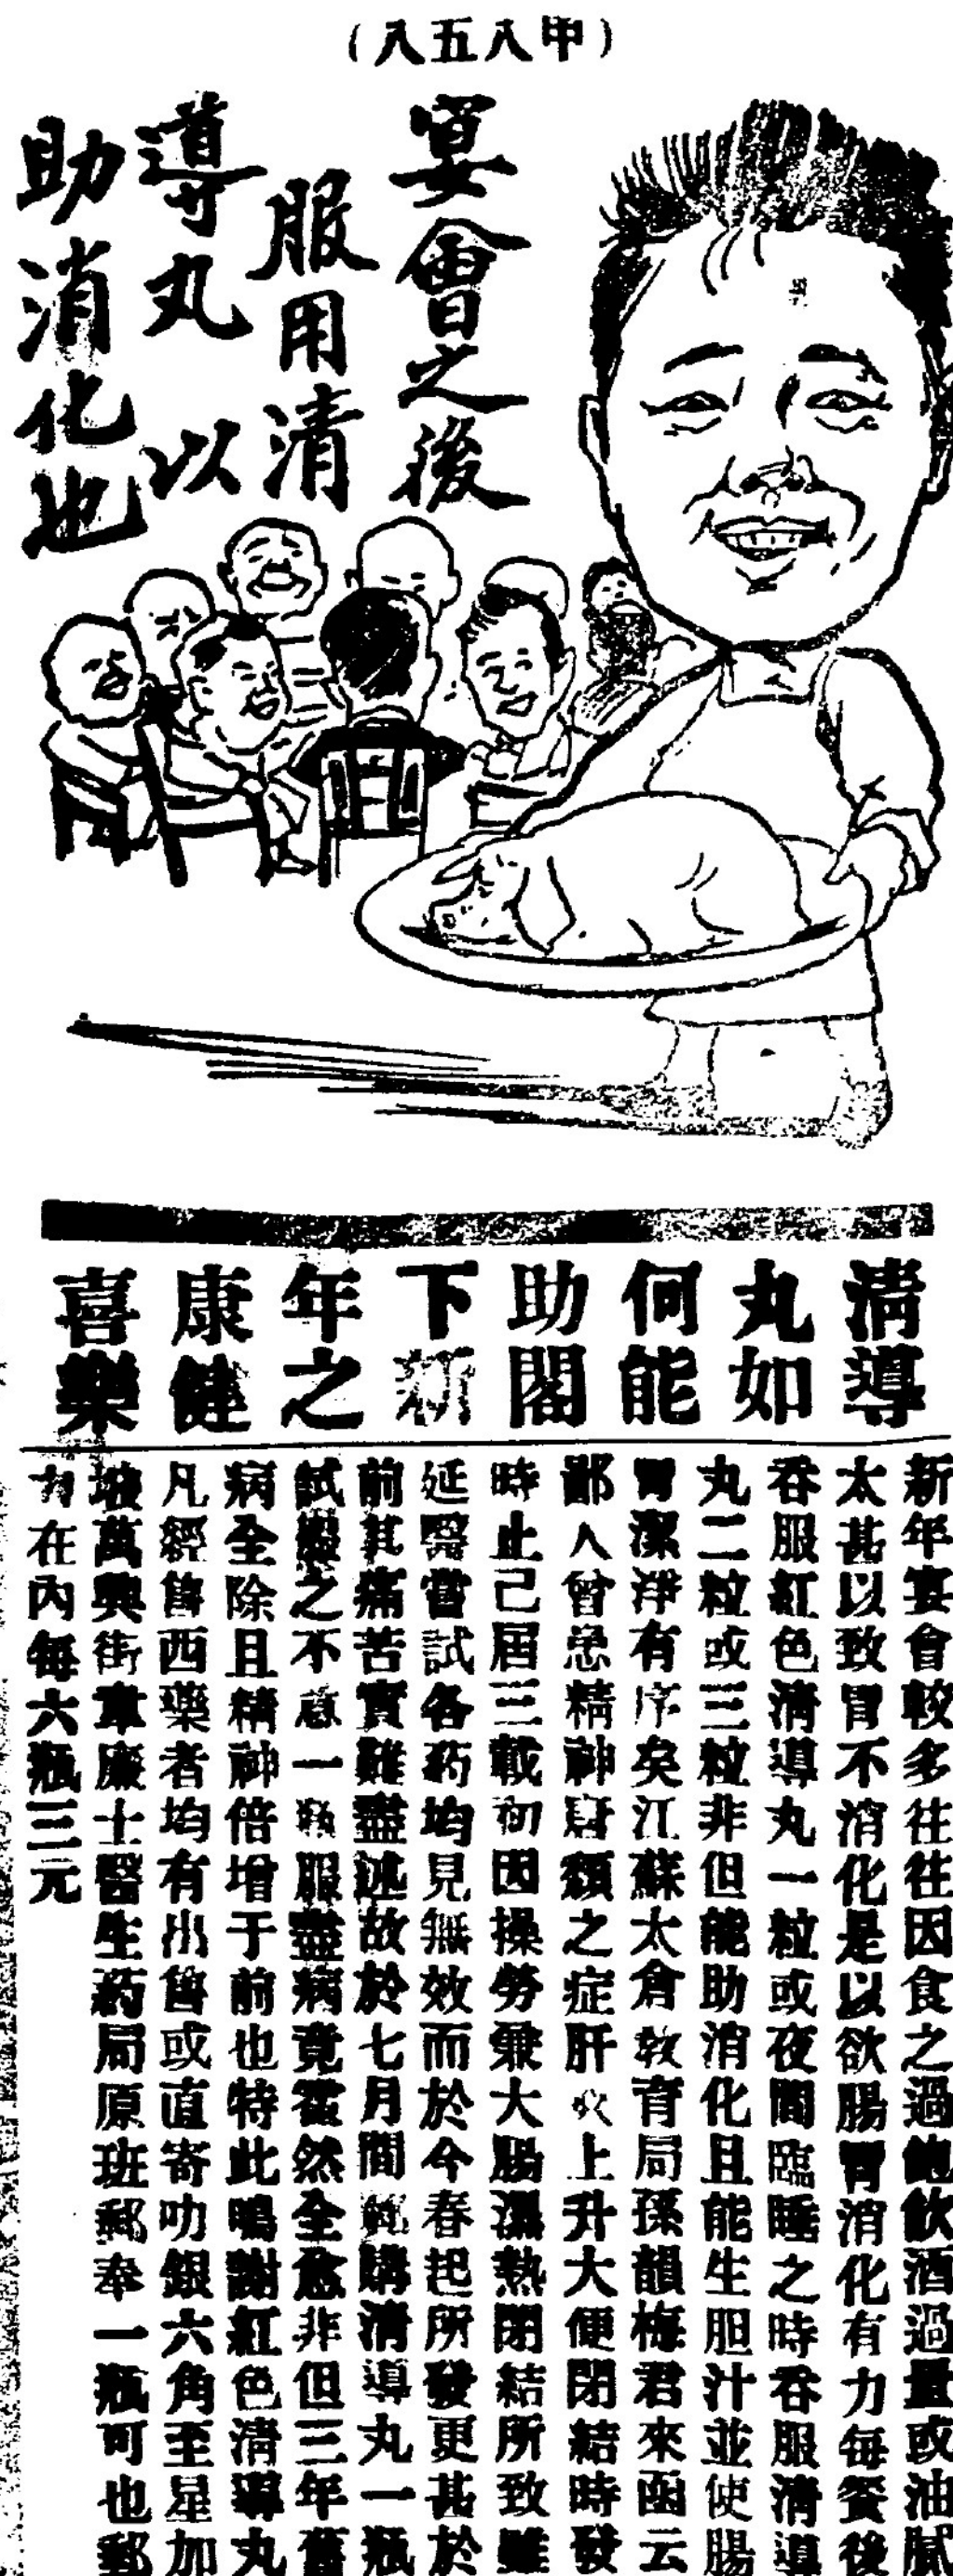 （甲八五八）
宴會之後
服用清
導丸以
助消化也
清導
丸如
何能
助閣
下新
年之
康健
喜樂
新年宴會較多往往因食之過飽飲酒過量或油膩
太甚以致胃不消化是以欲腸胃消化有力每餐後
吞服紅色清導丸一粒或夜間臨睡之時吞服清導
丸二粒或三粒非但能助消化且能生胆汁並使腸
胃潔淨有序矣江蘇太倉敎育局孫韻梅君來函云
鄙人曾患精神衰頹之症肝火上升大便閉結時發
時止已屆三載初因操勞兼大腸濕熱閉結所致雖
延醫嘗試各药均見無效而於今春起所發更甚於
前其痛苦實難盡述故於七月間購清導丸一瓶
試服之不意一瓶服盡病竟霍然全愈非但三年舊
病全除且精神倍增于前也特此鳴謝紅色清導丸
凡經售西藥者均有出售或直寄叻銀六角至星加
坡萬興街韋廉士醫生药局原班郵奉一瓶可也郵
力在內每六瓶三元